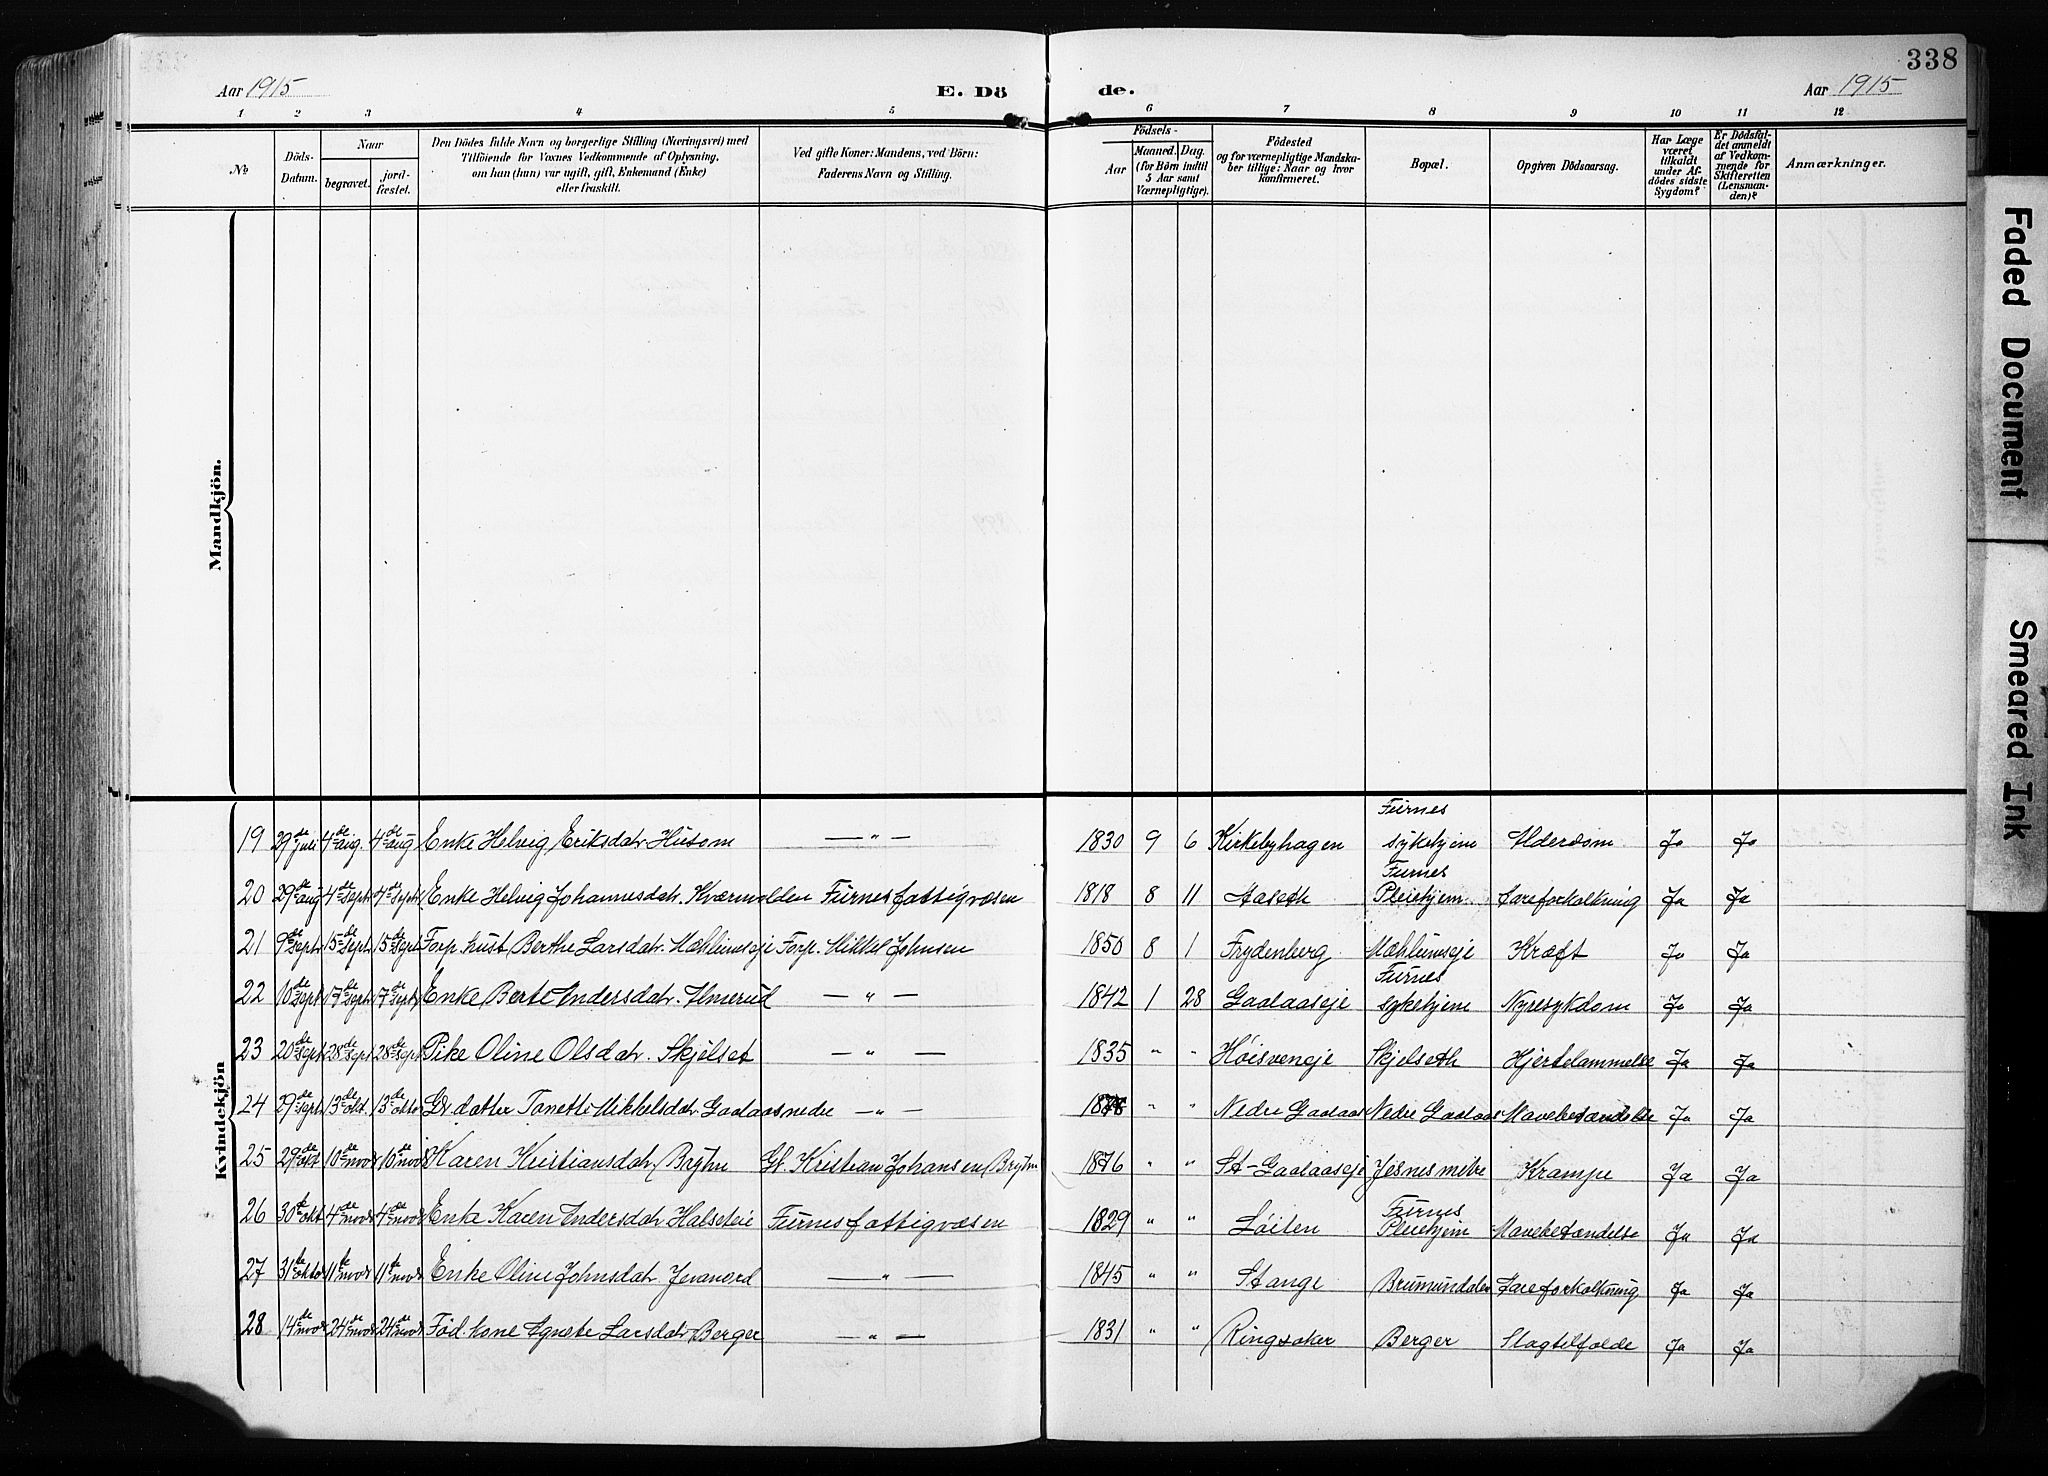 338
Aar 1915 E. Dö de. Aar 1915
1 2 3 4 5 6 7 8 9 10 11 12
No
Döds-Datum.
Naar
begravet.
jord-fæstet.
Den Dödes fulde Navn og borgerlige Stilling (Næringsvei) med
Tilföiende for Voxnes Vedkommende af Oplysning,
om han (hun) var ugift, gift, Enkemand (Enke)
eller fraskilt.
Ved gifte Koner: Mandens, ved Börn:
Faderens Navn og Stilling.
Födsels-
Aar
Maaned. Dag.
(for Börn indtil
5 Aar samt
Værnepligtige).
Födested
og for værnepligtige Mandska-
ber tillige: Naar og hvor
konfirmeret.
Bopæl.
Opgiven Dödsaarsag.
Har Læge
været
tilkaldt
under Af-
dödes sidste
Sygdom?
Er Dödsfal-
det anmeldt
af Vedkom-
mende for
Skifteretten
(Lensman-
den)?
Anmærkninger.
Mandkjön.
Kvindekjön
19 29de juli 4de aug. 4de aug Enke Helvig Eriksdatr Husom — " — 1830 9 6 Kirkebyhagen Furnes sykehjem Alderdom Ja Ja
20 29de aug 4de sept 4de sept Enke Helvig Johannesdatr. Kværnvolden Furnes fattigvæsen 1818 8 11 Aaseth Furnes Pleiehjem Aareforkalkning Ja Ja
21 9de sept 15de sept 15de sept Forp. hust. Berthe Larsdatr. Mæhlumseje Forp. Mikkel Johnsen 1850 8 1 Frydenberg Mæhlumseje Kræft Ja Ja
22 10de sept 17de sept 17de sept Enke Berte Andersdatr. Almerud — " — 1842 1 28 Gaalaaseje Furnes sykehjem Nyresykdom Ja Ja
23 20de sept 28de sept 28de sept Pike Oline Olsdatr. Skjelset — " — 1835 " " Høisveneje Skjelseth Hjertelammelse Ja Ja
24 29de sept 13de okt. 13de okto Gr. datter Tonette Mikkelsdatr. Gaalaas nedre — " — " " Nedre Gaalaas Nedre Gaalaas Mavebetændelse Ja Ja
25 29de okt 10de novr 10de novr Karen Kristiansdatr Bryhn Kristian Johansen Bryhn 1876 " " St-Gaalaaseje Jesnesmibe Krampe Ja Ja
26 30te okt 4de novr 4de novr Enke Karen Andersdatr Halseteie Furnes fattigvæsen 1829 " " Løiten Furnes Pleiehjem Mavebetændelse Ja Ja
27 31te okto 11te novr 11te novr Enke Oline Johnsdatr. Jevanord — " — 1845 " " Stange Brumunddalen Aareforkalkning Ja Ja
28 14de novr 24de novr 24de novr Fød. kone Agnete Larsdatr Berger — " — 1831 " " Ringsaker Berger Slagtilfælde Ja Ja
Faded Document
Smeared Ink